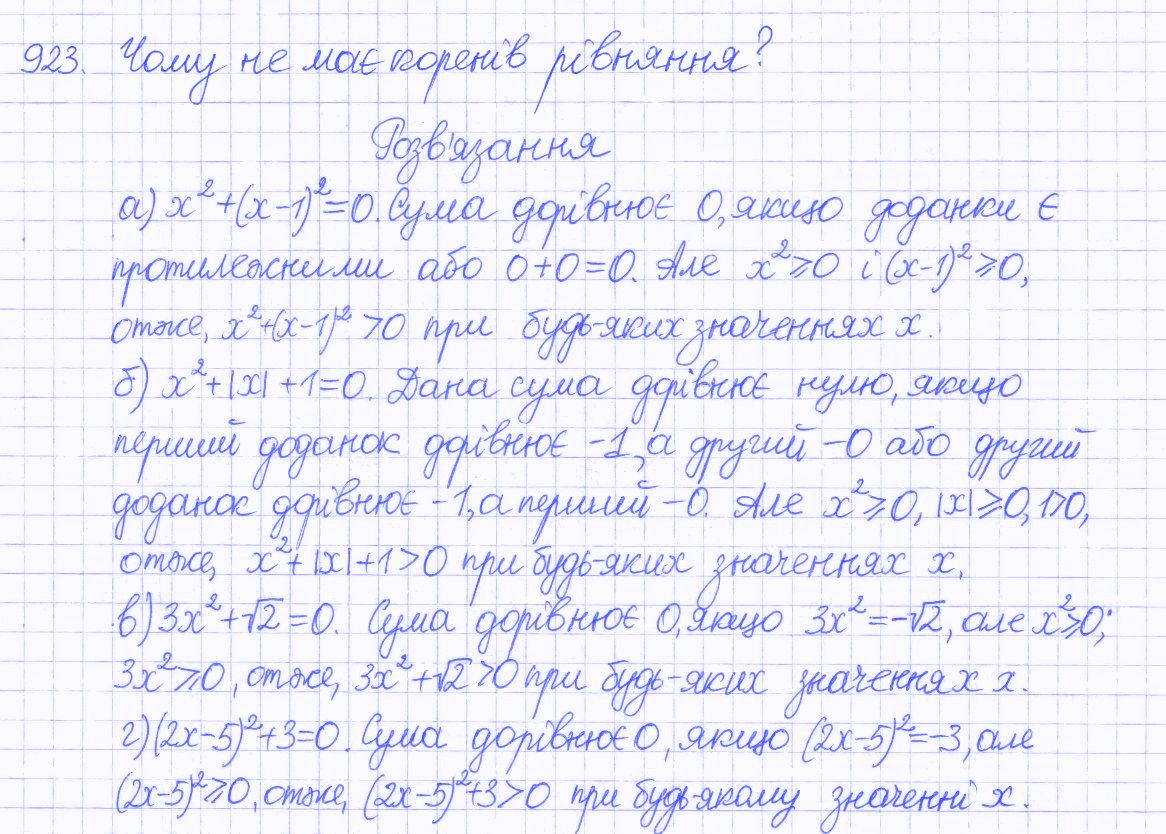 923. Чому не має коренів рівняння?
Розв'язання
а) x²+(x-1)²=0. Сума дорівнює 0, якщо доданки є
протилежними або 0+0=0. Але x²≥0 і (x-1)²≥0,
отже, x²+(x-1)²>0 при будь-яких значеннях x.
б) x²+|x|+1=0. Дана сума дорівнює нулю, якщо
перший доданок дорівнює -1, а другий -0 або другий
доданок дорівнює -1, а перший -0. Але x²≥0, |x|≥0, 1>0,
отже, x²+|x|+1>0 при будь-яких значеннях x.
в) 3x²+√2=0. Сума дорівнює 0, якщо 3x²=-√2, але x²≥0;
3x²≥0, отже, 3x²+√2>0 при будь-яких значеннях x.
г) (2x-5)²+3=0. Сума дорівнює 0, якщо (2x-5)²=-3, але
(2x-5)²≥0, отже, (2x-5)²+3>0 при будь-якому значенні x.